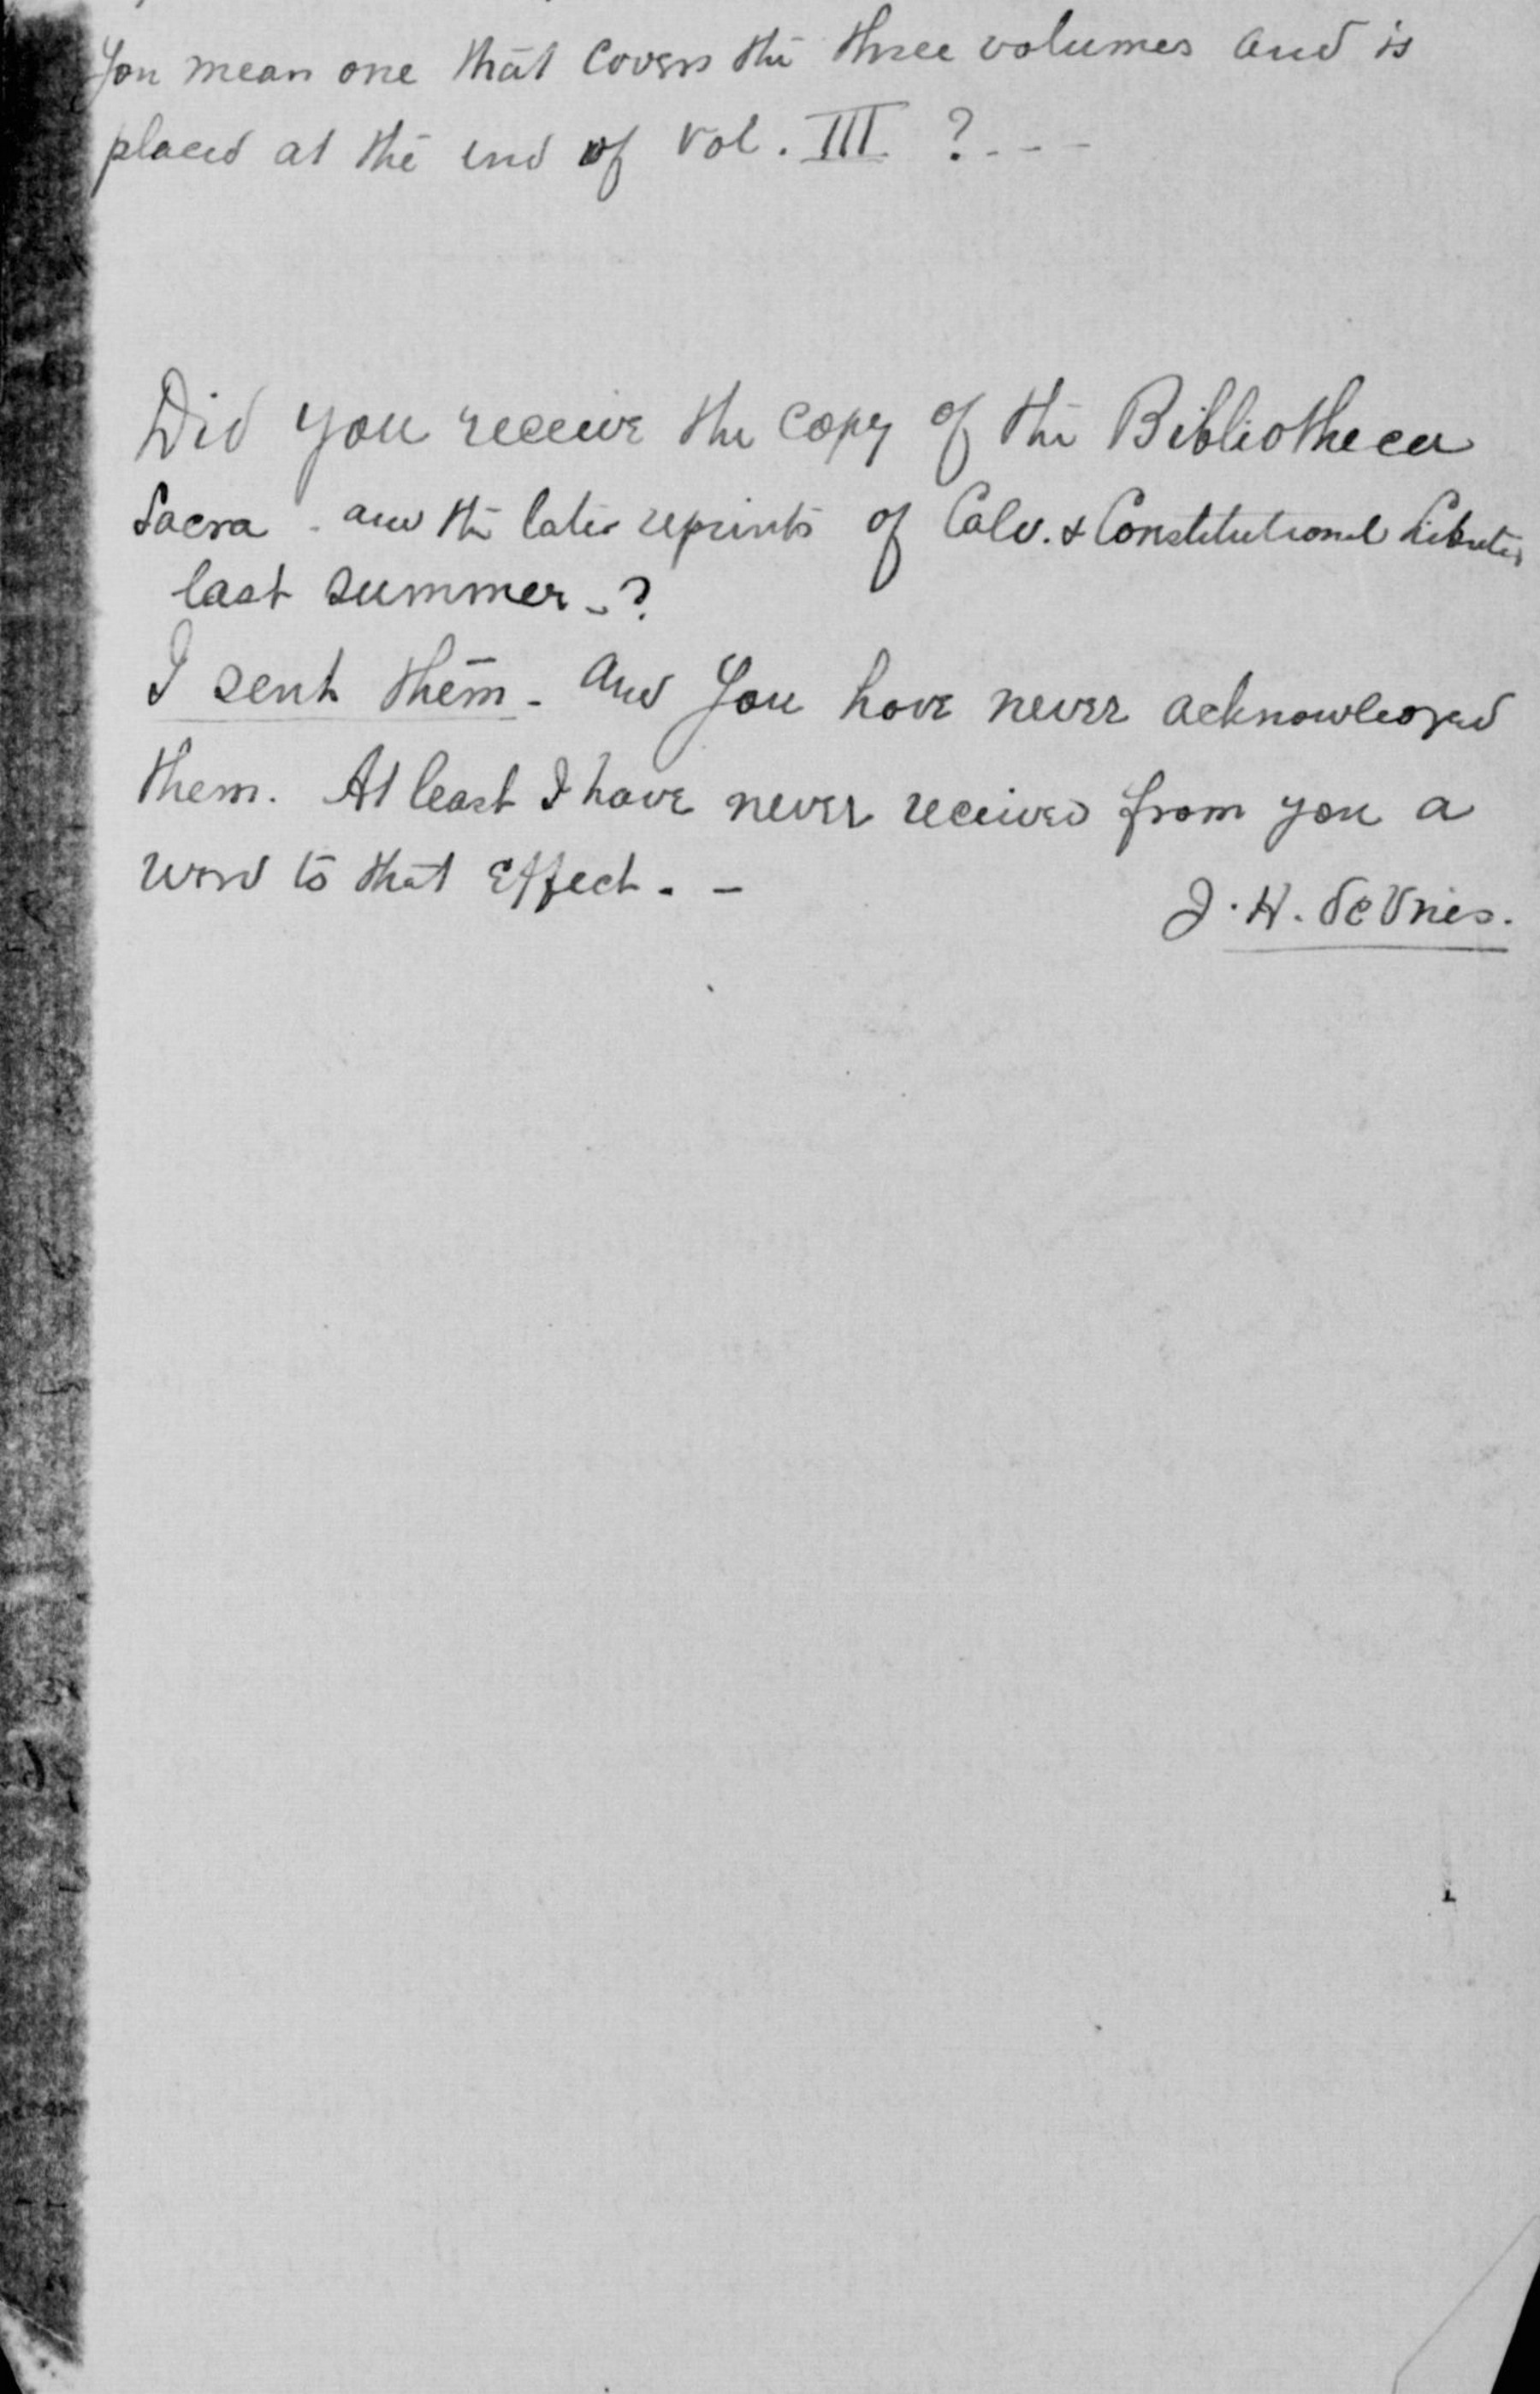 You mean one that covers the three volumes and is
placed at the end of vol. III ? - - -
Did you receive the copy of the Bibliotheca
Sacra - and the later reprints of Calv. & Constitutional Liberties
last summer - ?
I sent them - and you have never acknowledged
them. At least I have never received from you a
word to that effect. -
J. H. de Vries.